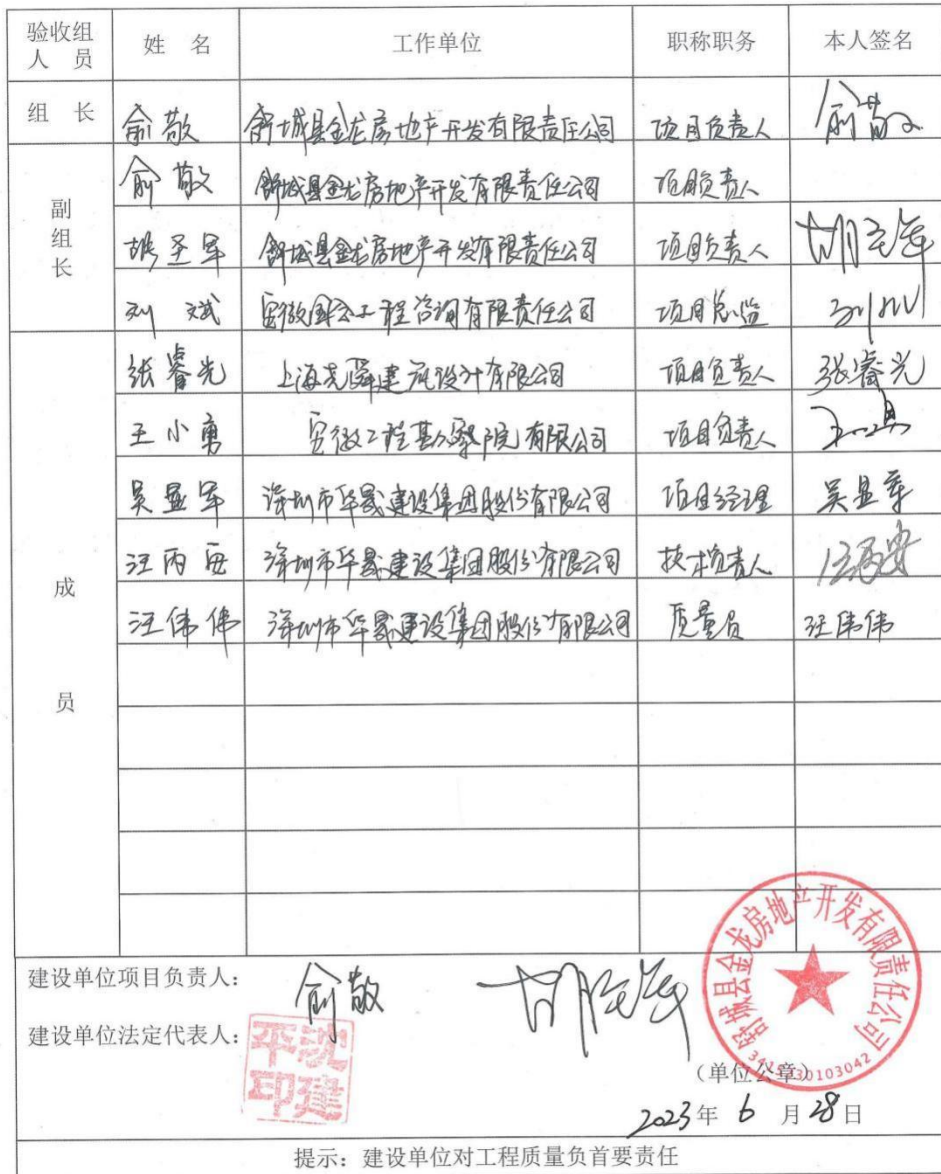 验收组人员 姓 名 工作单位 职称职务 本人签名
组 长 俞敬 舒城县金龙房地产开发有限责任公司 项目负责人 俞敬
副组长 俞敬 舒城县金龙房地产开发有限责任公司 项目负责人
胡圣军 舒城县金龙房地产开发有限责任公司 项目负责人 胡圣军
刘斌 安徽国公工程咨询有限责任公司 项目总监 刘斌
成员 张睿光 上海尧舜建筑设计有限公司 项目负责人 张睿光
王小勇 安徽工程勘察院有限公司 项目负责人
吴显军 深圳市华晟建设集团股份有限公司 项目经理 吴显军
汪丙安 深圳市华晟建设集团股份有限公司 技术负责人 汪丙安
汪伟伟 深圳市华晟建设集团股份有限公司 质量员 汪伟伟
建设单位项目负责人： 俞敬 胡圣军
建设单位法定代表人： 沈建平印
舒城县金龙房地产开发有限责任公司
（单位公章）
2023年 6 月 28 日
提示：建设单位对工程质量负首要责任